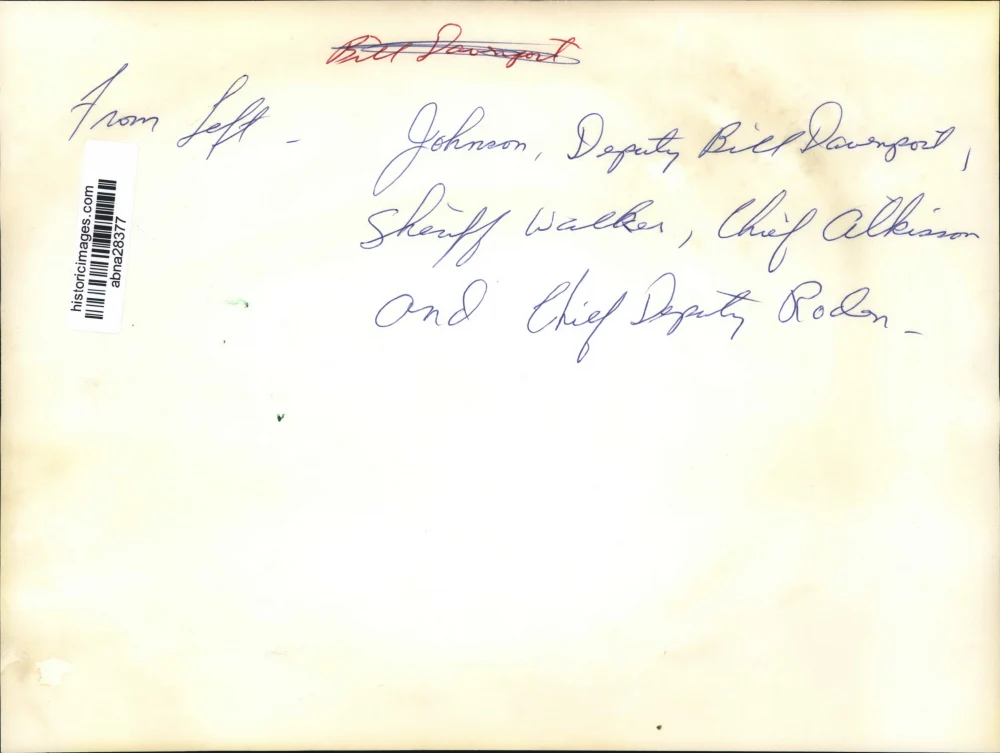 Bill Davenport
From Left - Johnson, Deputy Bill Davenport,
Sheriff Walker, Chief Atkisson
and Chief Deputy Roden -
historicimages.com
abna28377